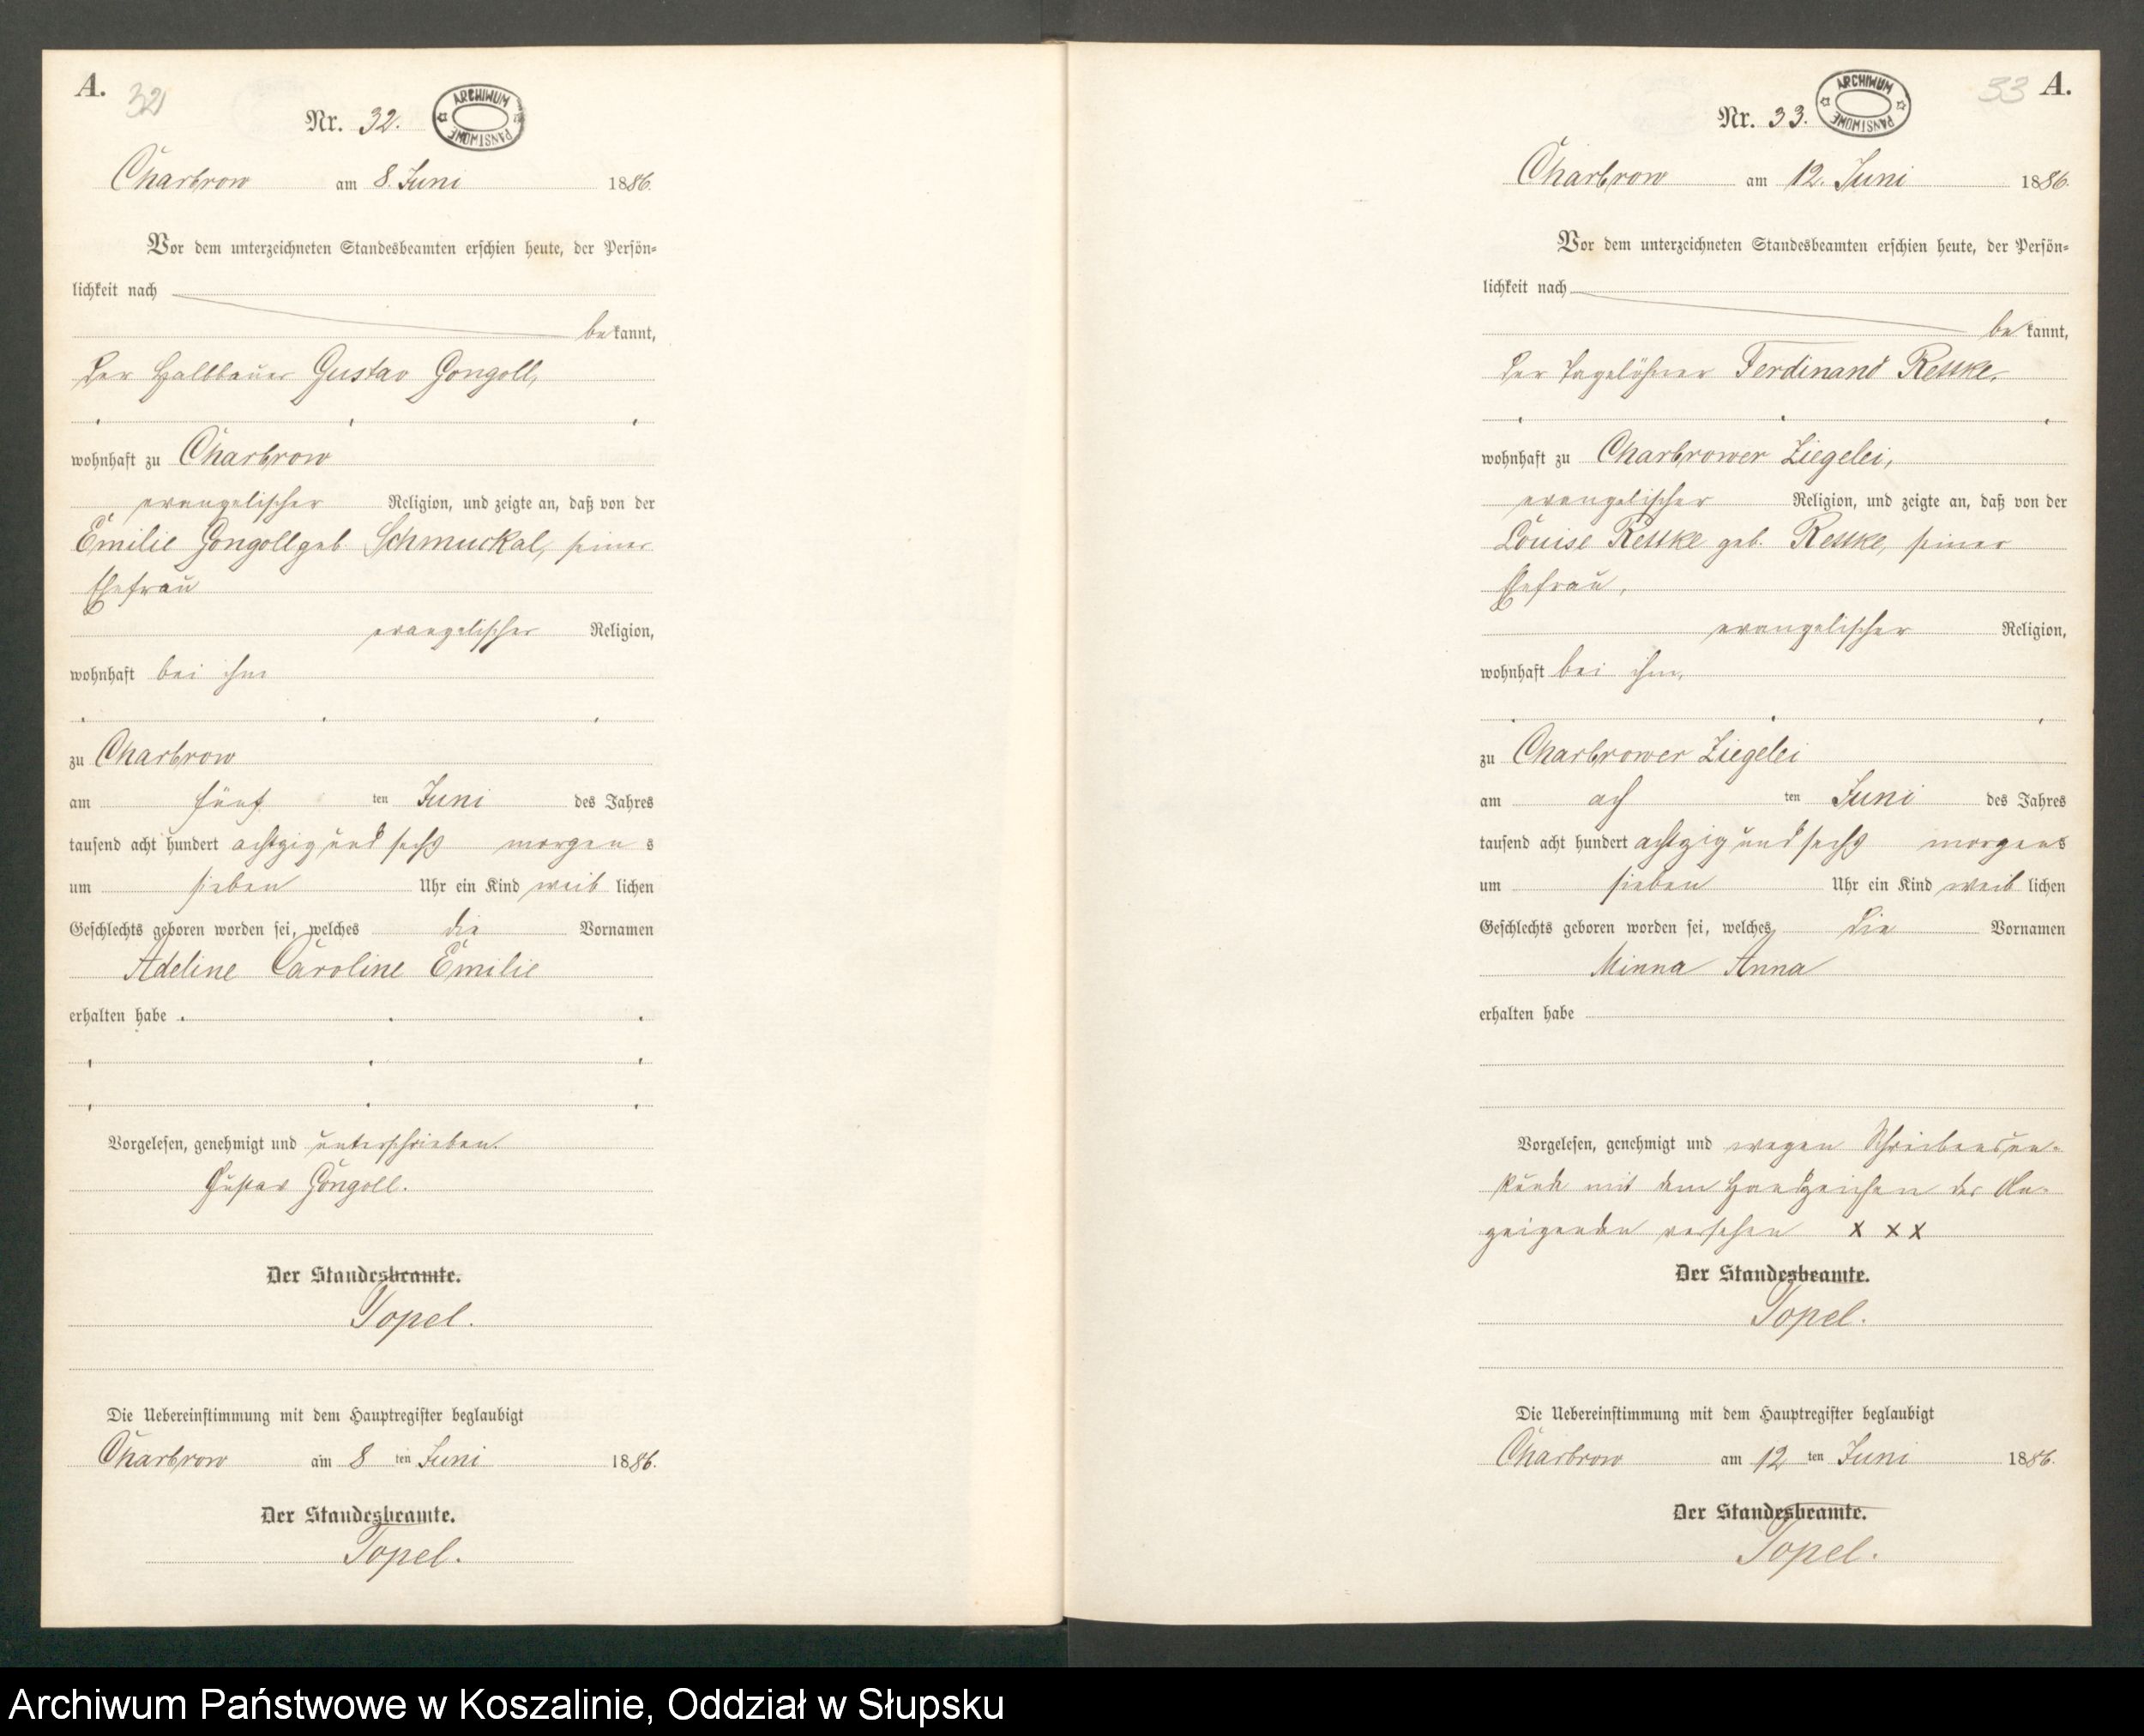 A.
32
Nr. 32.
ARCHIWUM PAŃSTWOWE
Charbrow am 8. Juni 1886.
Vor dem unterzeichneten Standesbeamten erschien heute, der Persön-
lichkeit nach
bekannt,
der Halbbauer Gustav Gongoll,
wohnhaft zu Charbrow
evangelischer Religion, und zeigte an, daß von der
Emilie Gongoll geb. Schmuckal, seiner
Ehefrau
evangelischer Religion,
wohnhaft bei ihm
zu Charbrow
am fünf ten Juni des Jahres
tausend acht hundert achtzig und sechs morgens
um sieben Uhr ein Kind weiblichen
Geschlechts geboren worden sei, welches die Vornamen
Adeline Caroline Emilie
erhalten habe
Vorgelesen, genehmigt und unterschrieben.
Gustav Gongoll.
Der Standesbeamte.
Topel.
Die Uebereinstimmung mit dem Hauptregister beglaubigt
Charbrow am 8 ten Juni 1886.
Der Standesbeamte.
Topel.
33 A.
Nr. 33.
ARCHIWUM PAŃSTWOWE
Charbrow am 12. Juni 1886.
Vor dem unterzeichneten Standesbeamten erschien heute, der Persön-
lichkeit nach
bekannt,
der Tagelöhner Ferdinand Reske,
wohnhaft zu Charbrower Ziegelei,
evangelischer Religion, und zeigte an, daß von der
Louise Reske geb. Reske, seiner
Ehefrau,
evangelischer Religion,
wohnhaft bei ihm,
zu Charbrower Ziegelei
am ach ten Juni des Jahres
tausend acht hundert achtzig und sechs morgens
um sieben Uhr ein Kind weiblichen
Geschlechts geboren worden sei, welches die Vornamen
Minna Anna
erhalten habe
Vorgelesen, genehmigt und wegen Schreibensun-
kunde mit dem Handzeichen des An-
zeigenden versehen X X X
Der Standesbeamte.
Topel.
Die Uebereinstimmung mit dem Hauptregister beglaubigt
Charbrow am 12 ten Juni 1886.
Der Standesbeamte.
Topel.
Archiwum Państwowe w Koszalinie, Oddział w Słupsku